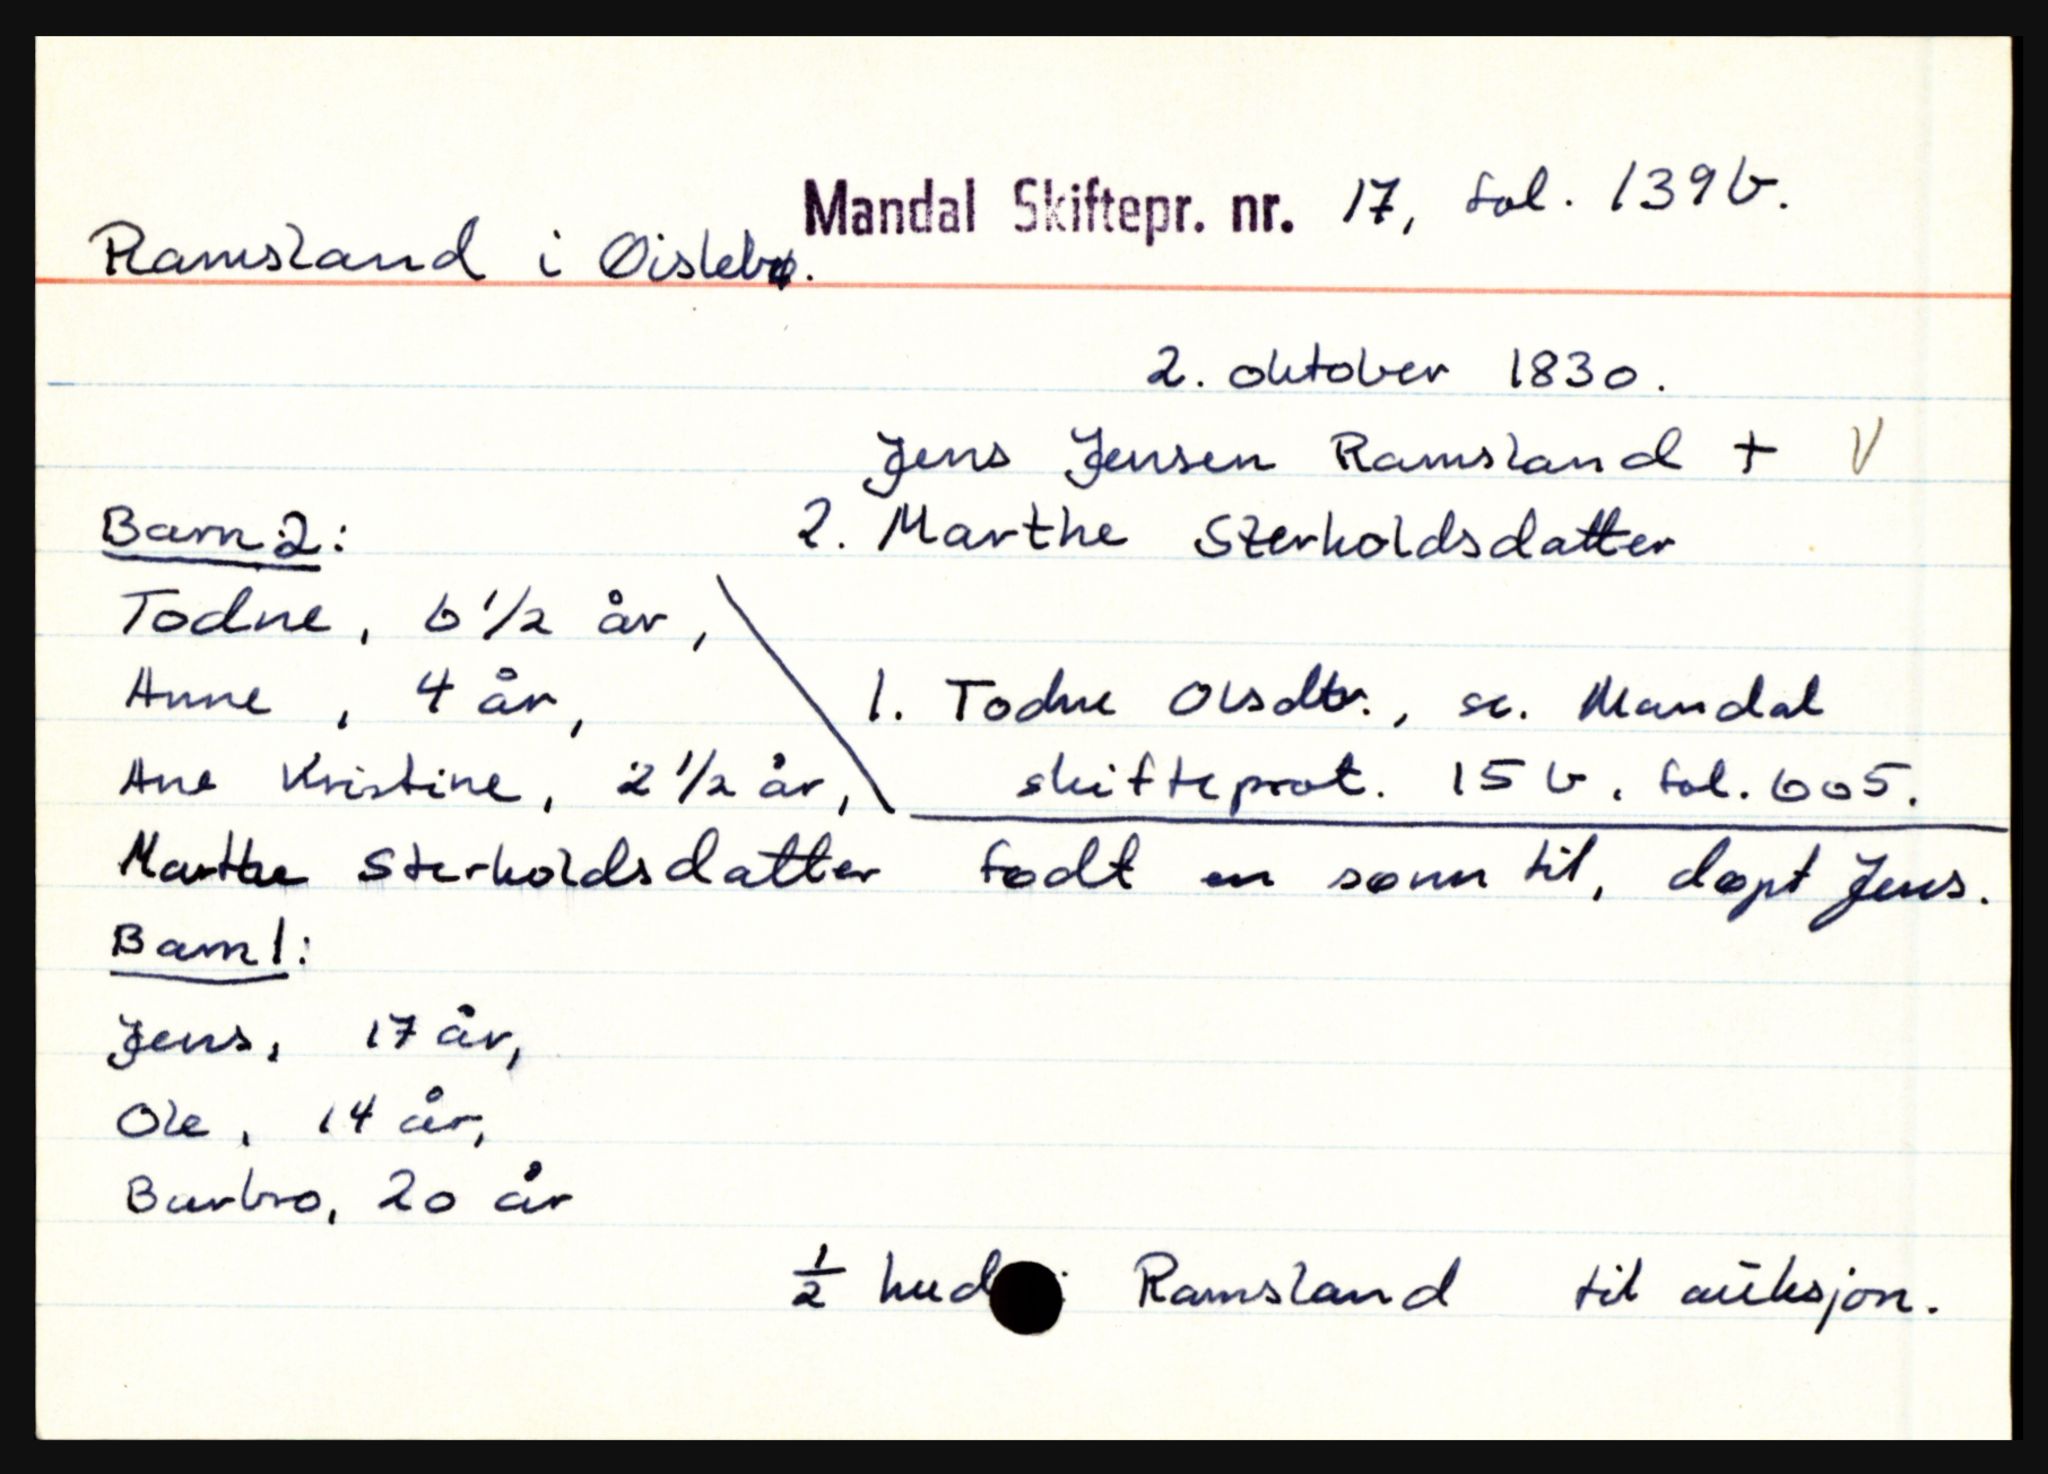 Mandal Skiftepr. nr. 17, fol. 139b.
Ramsland i Øislebø.
2. oktober 1830.
Jens Jensen Ramsland + V
Barn 2: 2. Marthe Sterkoldsdatter
Todne, 6 1/2 år,
Anne, 4 år, 1. Todne Olsdtr., se. Mandal
Ane Kristine, 2 1/2 år, skifteprot. 15 b, fol. 605.
Marthe Sterkoldsdatter født en sønn til, døpt Jens.
Barn 1:
Jens, 17 år,
Ole, 14 år,
Barbro, 20 år
1/2 hud i Ramsland til auksjon.